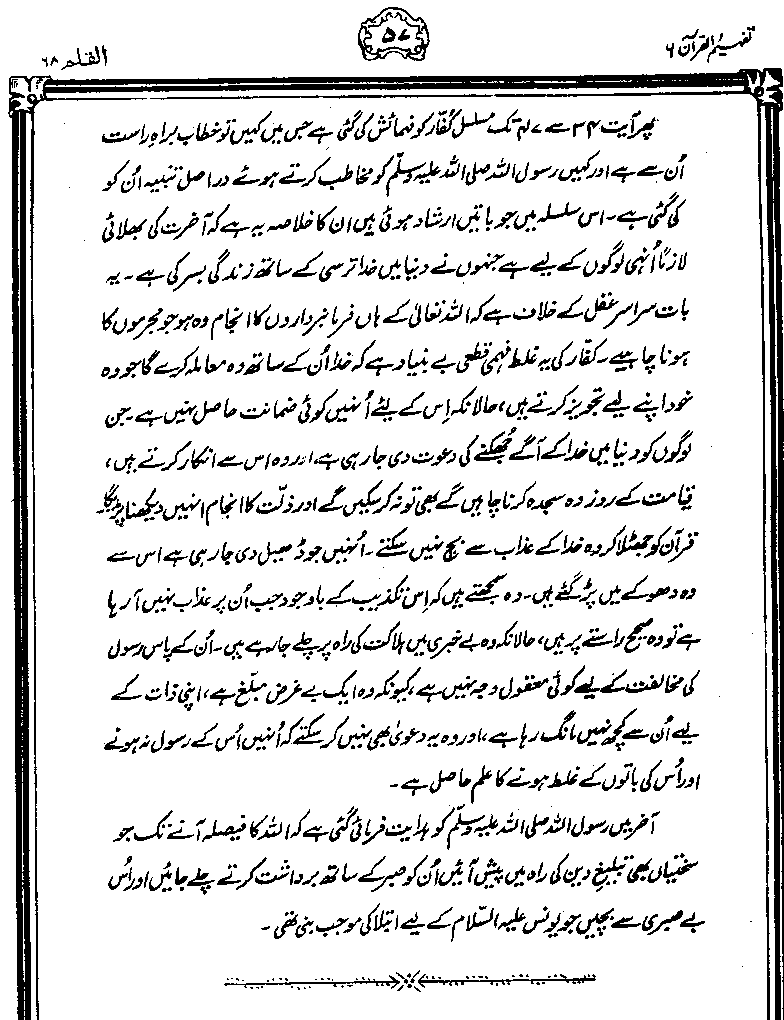 تفہیم القرآن ۶
۵۷
القلم ۶۸
پھر آیت ۳۴ سے ۴۷ تک مسلسل کُفّار کو فہمائش کی گئی ہے جس میں کہیں تو خطاب براہِ راست
اُن سے ہے اور کہیں رسول اللہ صلی اللہ علیہ وسلّم کو مخاطب کرتے ہوئے دراصل تنبیہ اُن کو
کی گئی ہے۔ اس سلسلہ میں جو باتیں ارشاد ہوئی ہیں ان کا خلاصہ یہ ہے کہ آخرت کی بھلائی
لازمًا اُنہی لوگوں کے لیے ہے جنہوں نے دنیا میں خدا ترسی کے ساتھ زندگی بسر کی ہے۔ یہ
بات سراسر عقل کے خلاف ہے کہ اللہ تعالیٰ کے ہاں فرمانبرداروں کا انجام وہ ہو جو مجرموں کا
ہونا چاہیے۔ کفار کی یہ غلط فہمی قطعی بے بنیاد ہے کہ خدا اُن کے ساتھ وہ معاملہ کرے گا جو وہ
خود اپنے لیے تجویز کرتے ہیں، حالانکہ اِس کے لئے اُنہیں کوئی ضمانت حاصل نہیں ہے۔ جن
لوگوں کو دنیا میں خدا کے آگے جُھکنے کی دعوت دی جا رہی ہے اور وہ اس سے انکار کرتے ہیں،
قیامت کے روز وہ سجدہ کرنا چاہیں گے بھی تو نہ کر سکیں گے اور ذلّت کا انجام انہیں دیکھنا پڑیگا۔
قرآن کو جھٹلا کر وہ خدا کے عذاب سے بچ نہیں سکتے۔ اُنہیں جو ڈھیل دی جا رہی ہے اس سے
وہ دھوکے میں پڑ گئے ہیں۔ وہ سمجھتے ہیں کہ اِس تکذیب کے باوجود جب اُن پر عذاب نہیں آ رہا
ہے تو وہ صحیح راستے پر ہیں، حالانکہ وہ بے خبری میں ہلاکت کی راہ پر چلے جا رہے ہیں۔ اُن کے پاس رسول
کی مخالفت کے لیے کوئی معقول وجہ نہیں ہے، کیونکہ وہ ایک بے غرض مبلّغ ہے، اپنی ذات کے
لیے اُن سے کچھ نہیں مانگ رہا ہے، اور وہ یہ دعویٰ بھی نہیں کر سکتے کہ اُنہیں اُس کے رسول نہ ہونے
اور اُس کی باتوں کے غلط ہونے کا علم حاصل ہے۔
آخر میں رسول اللہ صلی اللہ علیہ وسلّم کو ہدایت فرمائی گئی ہے کہ اللہ کا فیصلہ آنے تک جو
سختیاں بھی تبلیغِ دین کی راہ میں پیش آئیں اُن کو صبر کے ساتھ برداشت کرتے چلے جائیں اور اُس
بے صبری سے بچیں جو یونس علیہ السّلام کے لیے ابتلا کی موجب بنی تھی۔